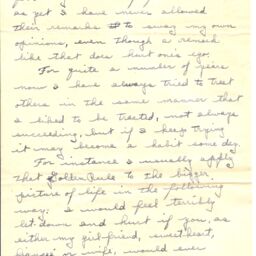 as yet I have never allowed
their remarks to sway my own
opinions, even though a remark
like that does hurt one's ego.
For quite a number of years
now I have always tried to treat
others in the same manner that
I liked to be treated, not always
succeeding, but if I keep trying
it may become a habit some day.
For instance I usually apply
that Golden Rule to the bigger
picture of life in the following
way. I would feel terribly
let down and hurt if you, as
either my girl-friend, sweetheart,
fiancee or wife, would ever